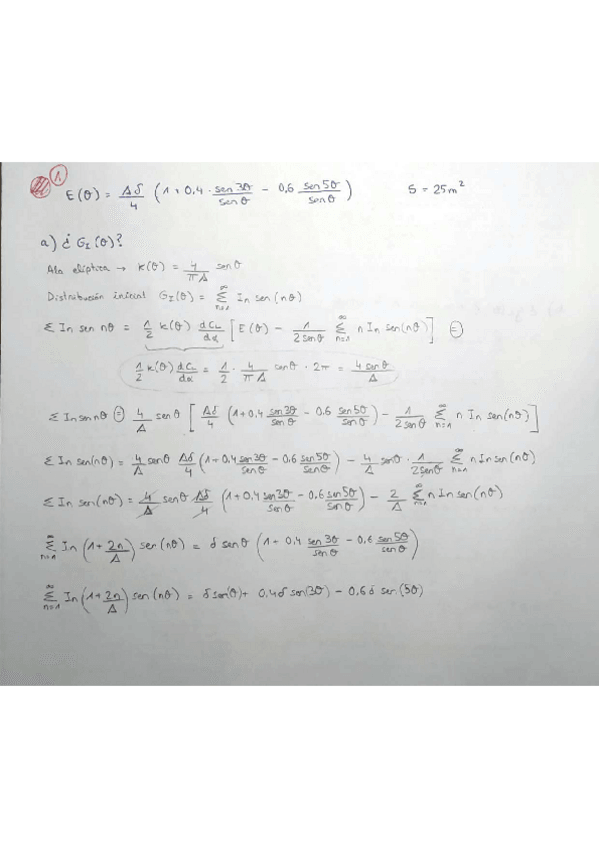 1
E(θ) = Λδ/4 (1 + 0,4 · sen3θ/senθ − 0,6 sen5θ/senθ) S = 25m²
a) ¿ G_I(θ)?
Ala elíptica → k(θ) = 4/(πΛ) senθ
Distribución inicial G_I(θ) = Σ_{n=1}^∞ In sen(nθ)
Σ In sen nθ = 1/2 k(θ) dC_L/dα [E(θ) − 1/(2senθ) Σ_{n=1}^∞ n In sen(nθ)] (=)
1/2 k(θ) dC_L/dα = 1/2 · 4/(πΛ) senθ · 2π = 4senθ/Λ
Σ In sen nθ (=) 4/Λ senθ [Λδ/4 (1+0,4 sen3θ/senθ − 0,6 sen5θ/senθ) − 1/(2senθ) Σ_{n=1}^∞ n In sen(nθ)]
Σ In sen(nθ) = 4/Λ senθ Λδ/4 (1+0,4 sen3θ/senθ − 0,6 sen5θ/senθ) − 4/Λ senθ · 1/(2senθ) Σ_{n=1}^∞ n In sen(nθ)
Σ In sen(nθ) = 4/Λ senθ Λδ/4 (1+0,4 sen3θ/senθ − 0,6 sen5θ/senθ) − 2/Λ Σ_{n=1}^∞ n In sen(nθ)
Σ_{n=1}^∞ In (1+2n/Λ) sen(nθ) = δ senθ (1 + 0,4 sen3θ/senθ − 0,6 sen5θ/senθ)
Σ_{n=1}^∞ In (1+2n/Λ) sen(nθ) = δ sen(θ) + 0,4δ sen(3θ) − 0,6δ sen(5θ)